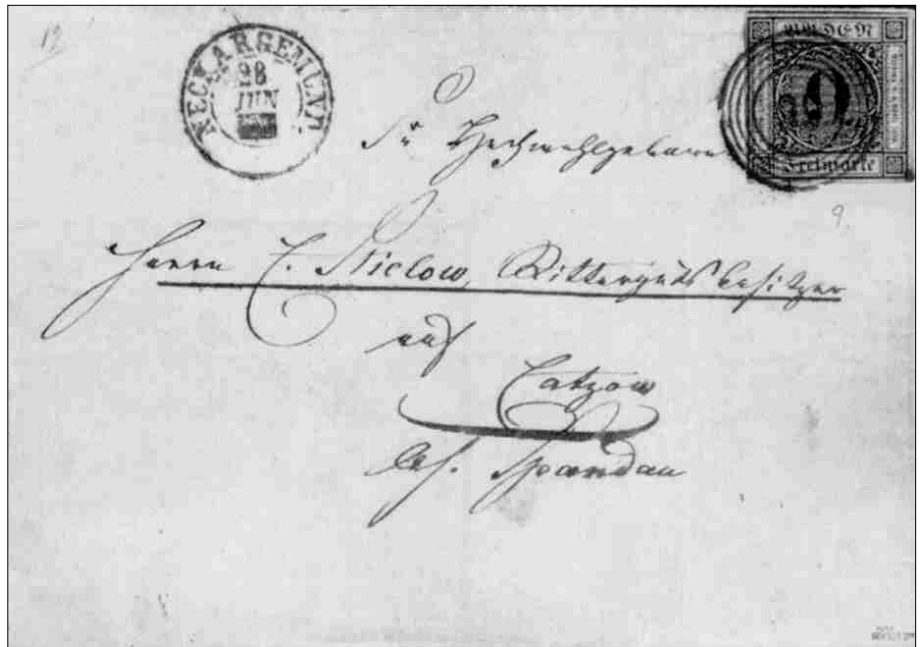 12
NECKARGEMÜND.
28
JUN
BADEN
9
Freimarke
Sr Hochwohlgeboren
9
Herrn C. Nielow, Rittergutsbesitzer
auf
Catzow
bei Spandau